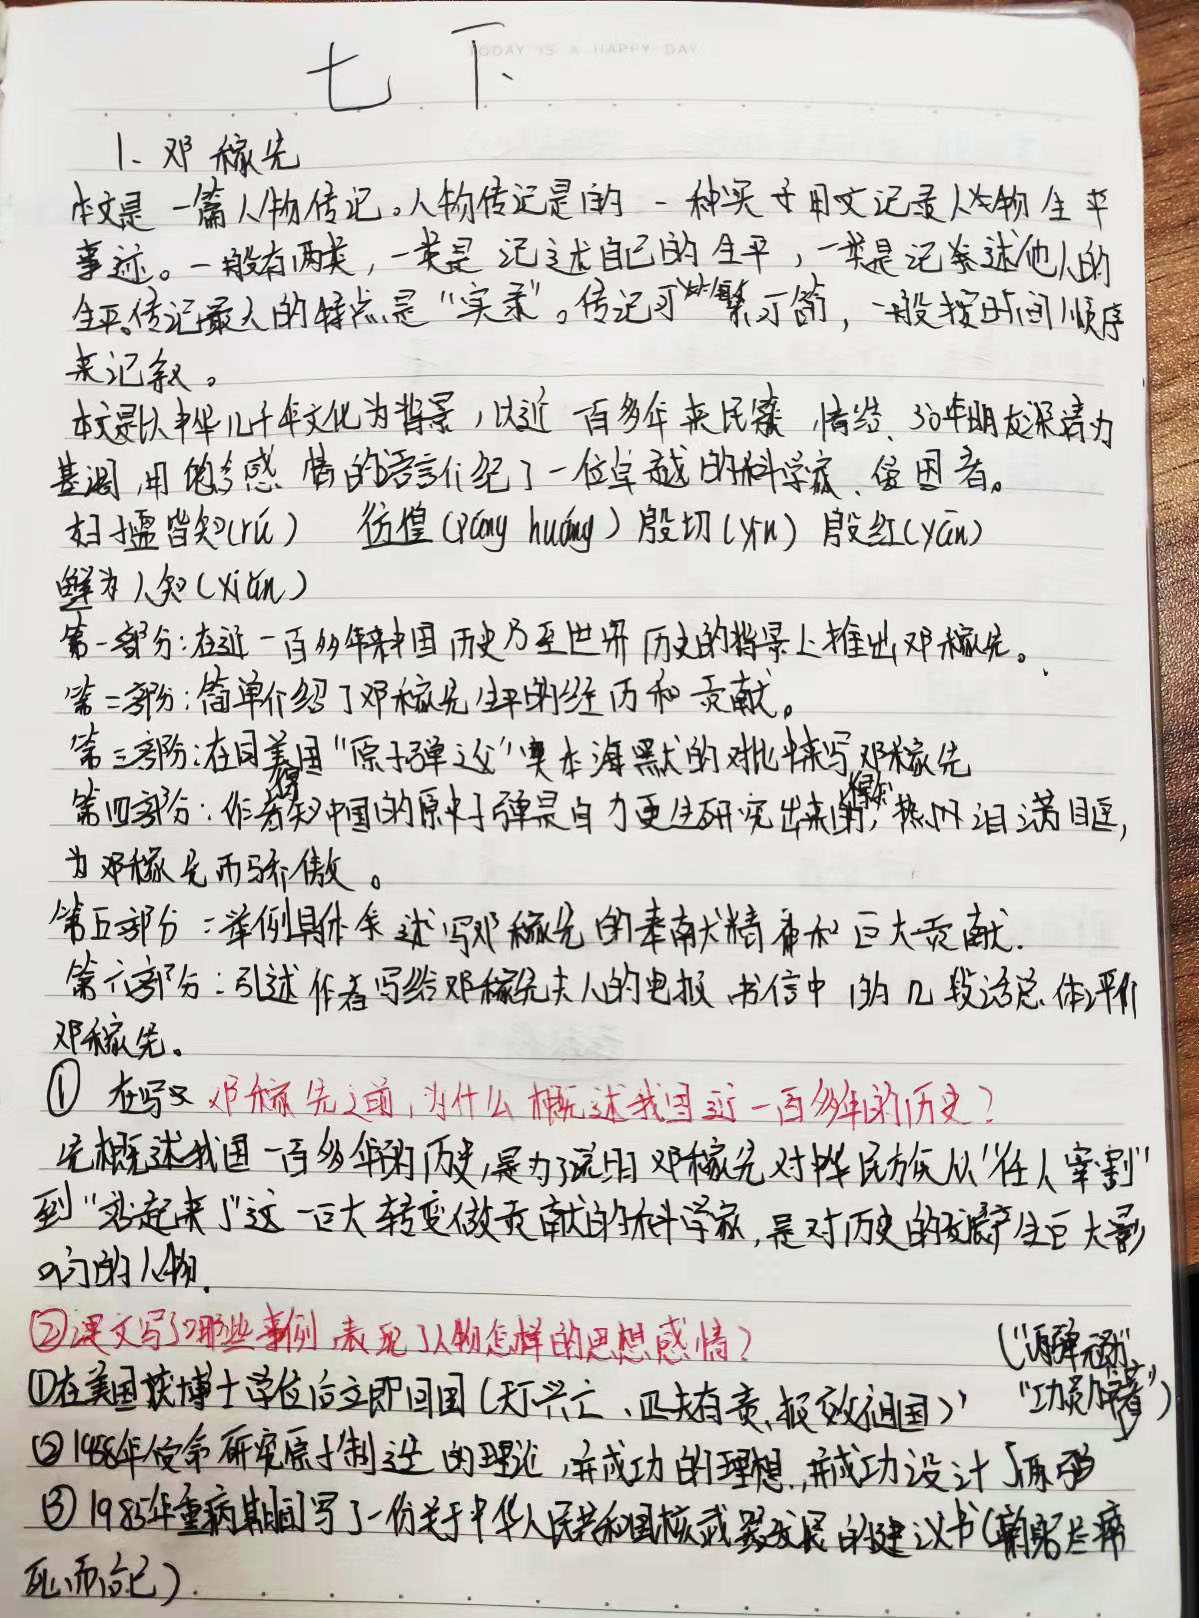 TODAY IS A HAPPY DAY
七下、
1、邓稼先
本文是一篇人物传记。人物传记是的一种实寸用文记录人物生平
事迹。一般有两类，一类是记述自己的生平，一类是记叙述他人的
生平。传记最大的特点是“实录”。传记可繁可简，一般按时间顺序
来记叙。
本文是以中华几千年文化为背景，以近一百多年来民族情结、30年朋友深情为
基调，用饱含感情的语言介绍了一位卓越的科学家、
妇孺皆知(rú) 彷徨(páng huáng) 殷切(yīn) 殷红(yān)
鲜为人知(xiǎn)
第一部分：在近一百多年来中国历史乃至世界历史的背景上推出邓稼先。
第二部分：简单介绍了邓稼先生平的经历和贡献。
第三部分：在同美国“原子弹之父”奥本海默的对比中来写邓稼先
第四部分：作者得知中国的原子弹是自力更生研究出来的，热泪满眶，
为邓稼先而骄傲。
第五部分：举例具体叙述写邓稼先的奉献精神和巨大贡献.
第六部分：引述作者写给邓稼先夫人的电报书信中的几段话总体评价
邓稼先。
① 在写邓稼先之前，为什么概述我国近一百多年的历史？
先概述我国一百多年的历史，是为了说明邓稼先对中华民族从“任人宰割”
到“站起来了”这一巨大转变做贡献的科学家，是对历史的发展产生巨大影
响的人物.
②课文写了哪些事例，表现了人物怎样的思想感情？
(“两弹元勋”
①在美国获博士学位后立即回国(天下兴亡、匹夫有责，报效祖国)
“功勋者”)
②1958年受命研究原子制造的理论，并成功的理想，并成功设计了原子弹
③1985年重病期间写了一份关于中华人民共和国核武器发展的建议书(鞠躬尽瘁
死而后已).